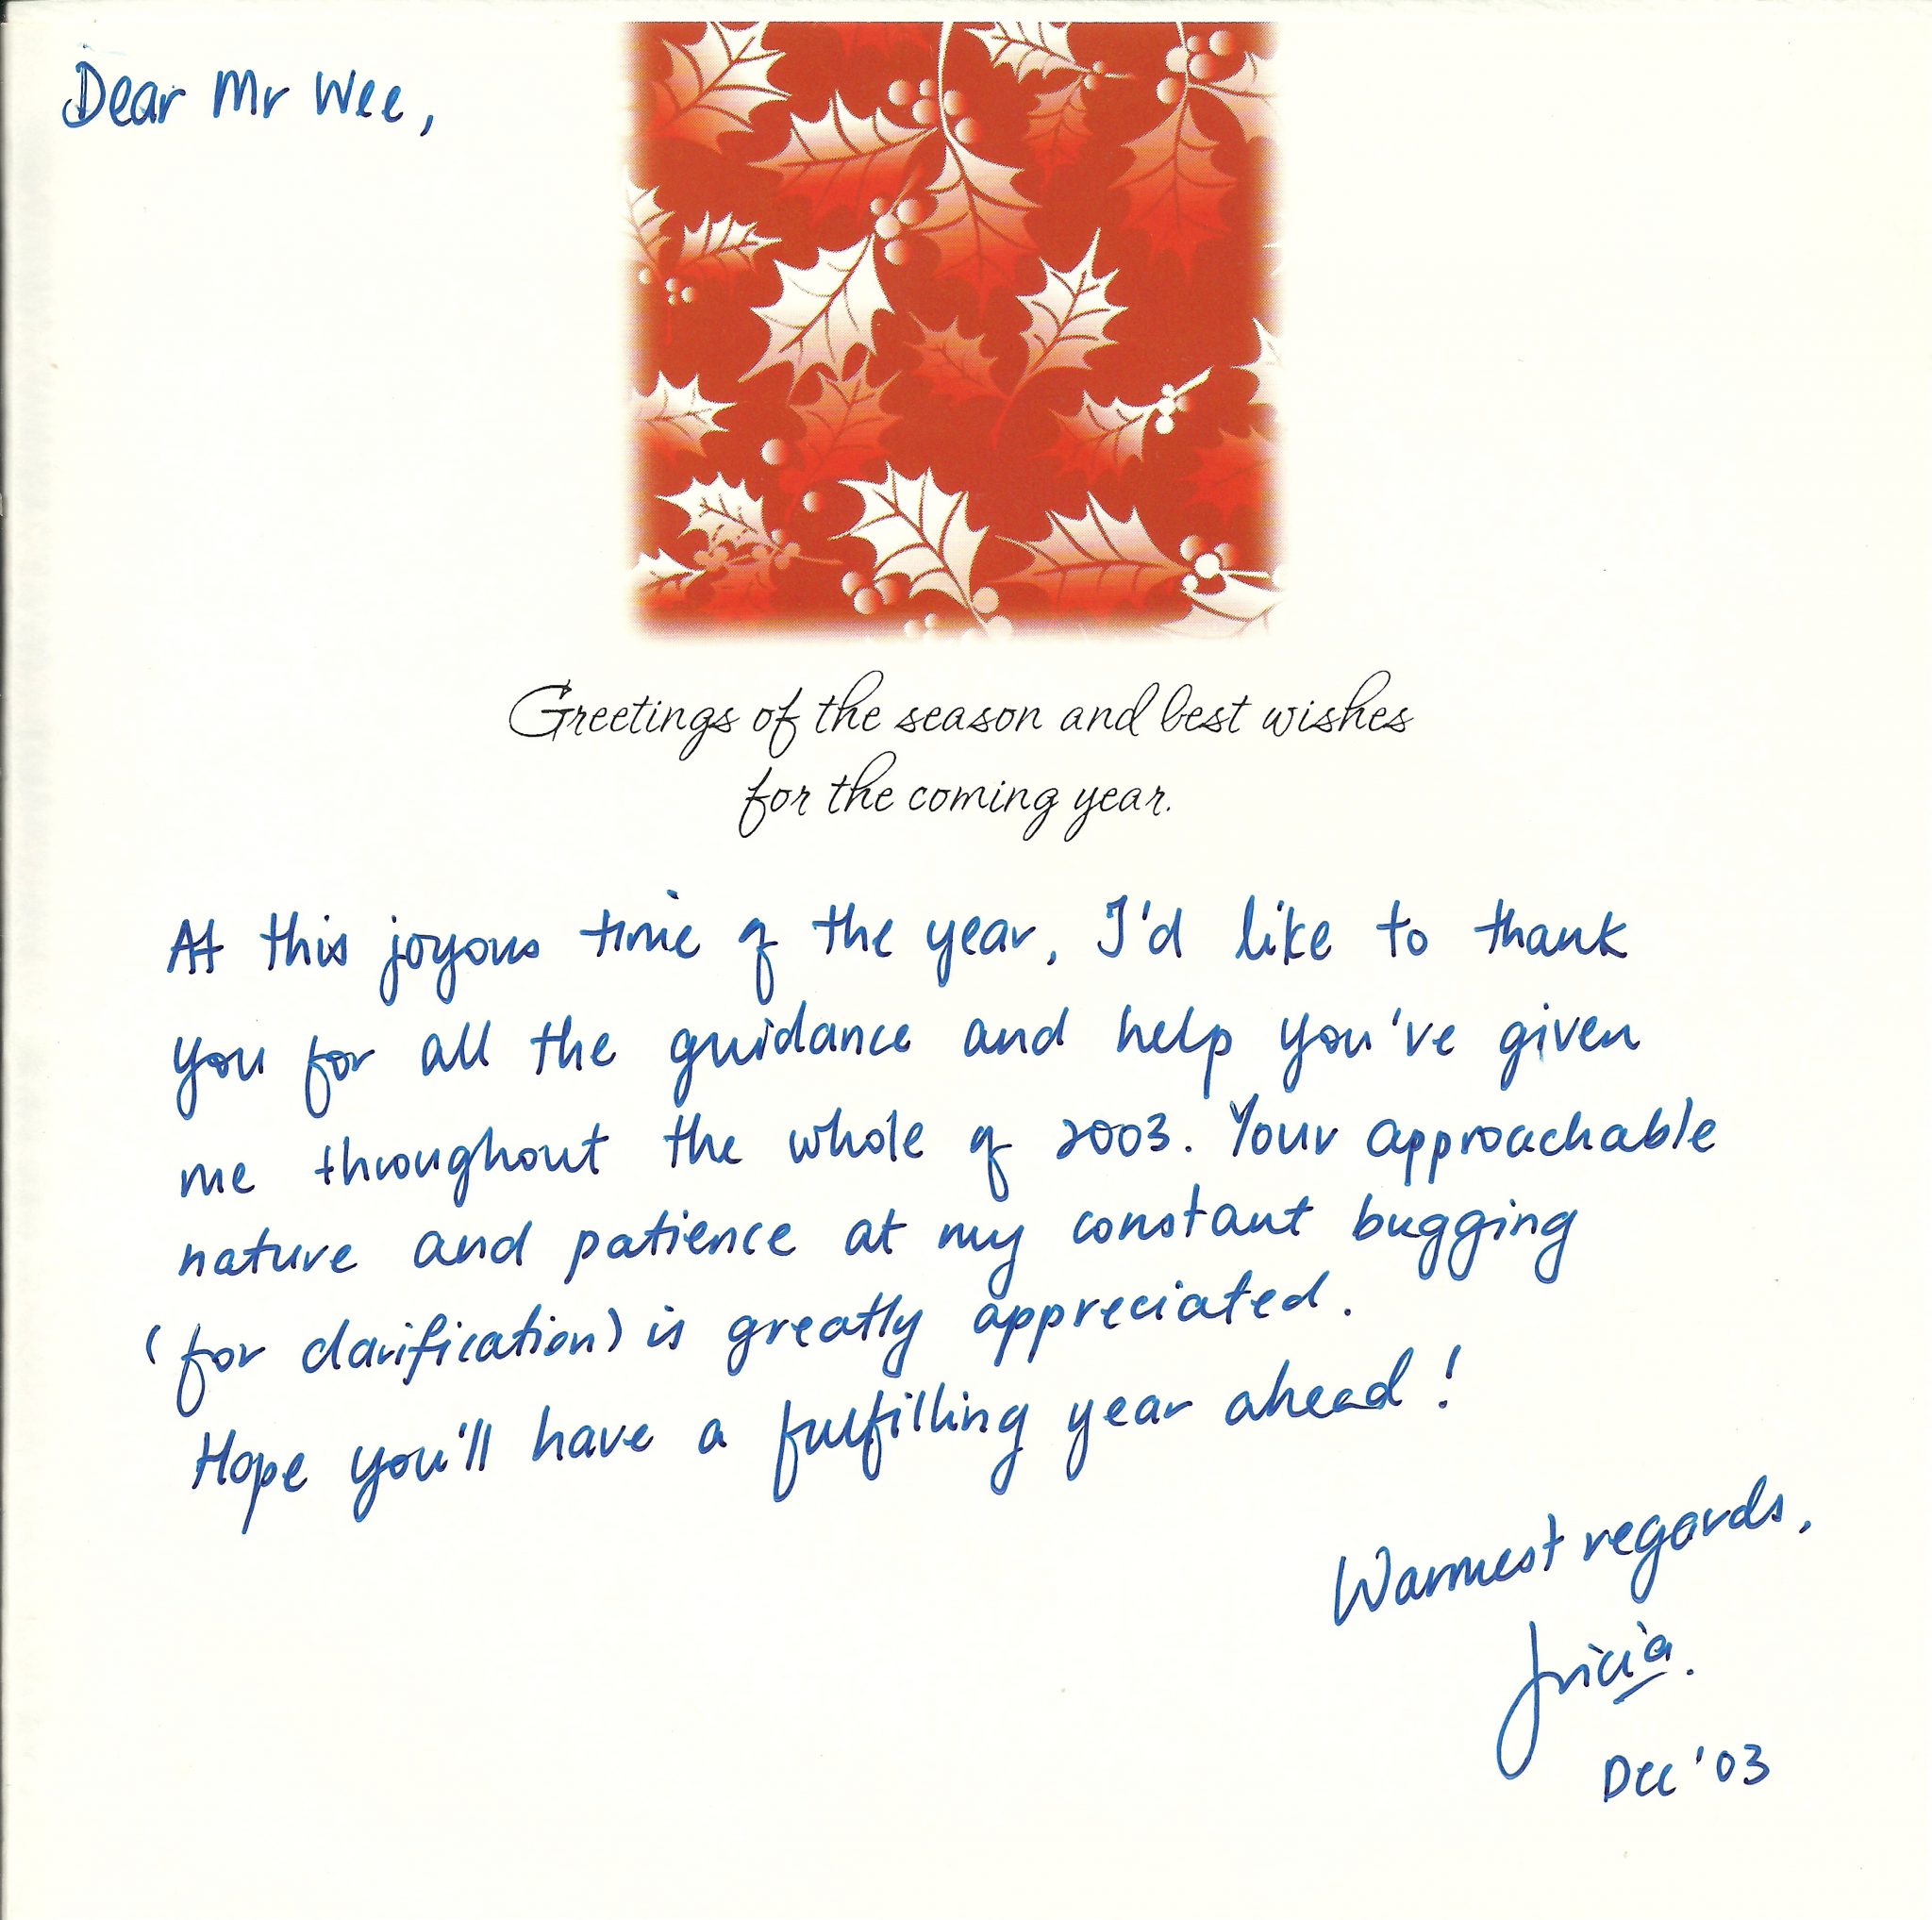 Dear Mr Wee,
Greetings of the season and best wishes
for the coming year.
At this joyous time of the year, I'd like to thank
you for all the guidance and help you've given
me throughout the whole of 2003. Your approachable
nature and patience at my constant bugging
(for clarification) is greatly appreciated.
Hope you'll have a fulfilling year ahead!
Warmest regards,
Tricia.
Dec '03